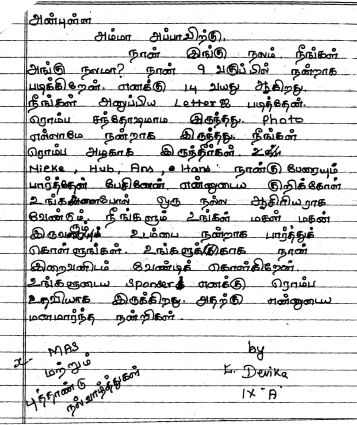 அன்புள்ள
அம்மா அப்பாவிற்கு,
நான் இங்கு நலம். நீங்கள்
அங்கு நலமா? நான் 9 வகுப்பில் நன்றாக
படிக்கிறேன். எனக்கு 14 வயது ஆகிறது.
நீங்கள் அனுப்பிய Letter ஐ படித்தேன்.
ரொம்ப சந்தோஷமாக இருந்தது. Photo
எல்லாமே நன்றாக இருந்தது. நீங்கள்
ரொம்ப அழகாக இருந்தீர்கள்
Nieke, Hub, Ans, Hans நான்கு பேரையும்
பார்த்தேன் பேசினேன். என்னுடைய குறிக்கோள்
உங்களைபோல் ஒரு நல்ல ஆசிரியராக
வேண்டும். நீங்களும் உங்கள் மகள் மகன்
இருவரும் உடம்பை நன்றாக பார்த்துக்
கொள்ளுங்கள். உங்களுக்காக நான்
இறைவனிடம் வேண்டிக் கொள்கிறேன்
உங்களுடைய Sponser எனக்கு ரொம்ப
உதவியாக இருக்கிறது. அதற்கு என்னுடைய
மனமார்ந்த நன்றிகள்.
X-MAS
மற்றும்
புத்தாண்டு
நல்வாழ்த்துகள்
by
E. Devika
IX 'A'